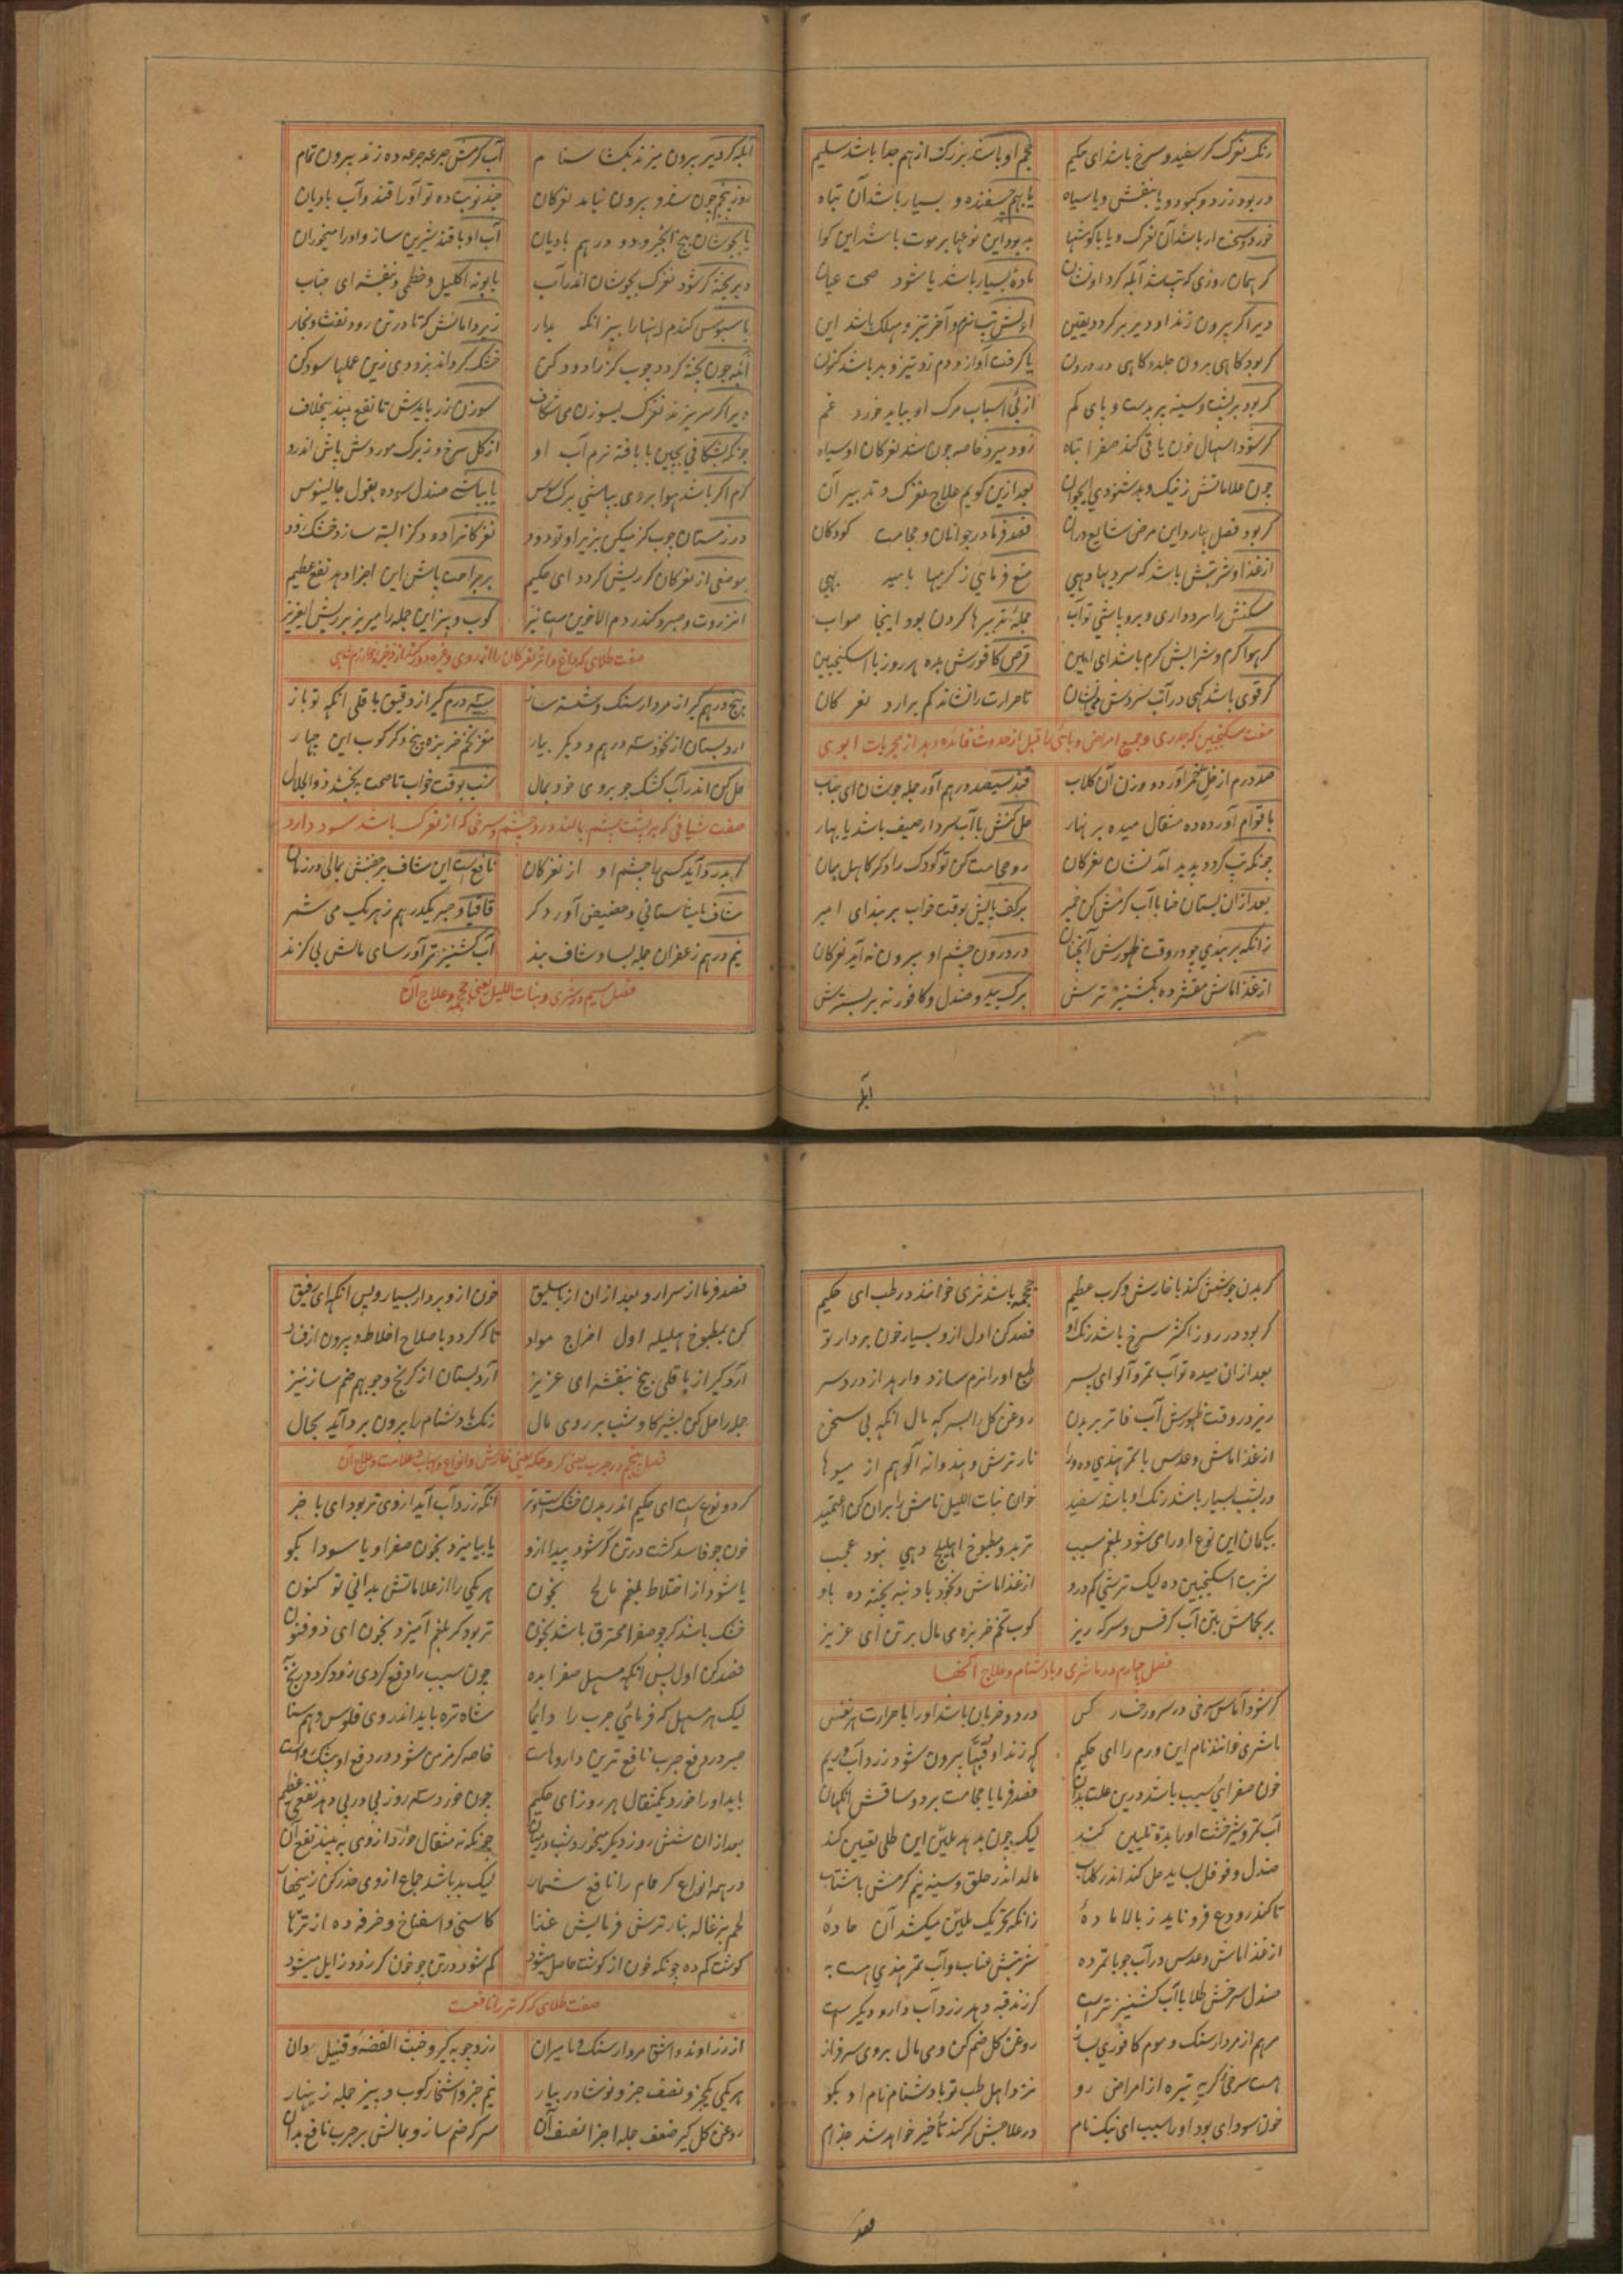 رنک نغزک کر سفید و سرخ باشد ای حکیم حجم او باشد بزرک از هم جدا باشد سلیم
در بود زرد و کبود و یا بنفش و یا سیاه یا بهم چسفنده و بسیار باشد آن تباه
کر همان روزی که تب شد آبله کرد او نشان ماده بسیار باشد یا شود صحت عیان
دیر اکر بیرون زند او دیر بر کردد یقین اولش تب نرم و آخر تیز و مهلک باشد این
کر بود کاهی برون جلد و کاهی در درون یا کرفت آواز و دم زد تیز و بد باشد کنون
کر بود بر پشت و سینه بر بدست و پای کم از پی اسباب مرک او بباید خورد غم
کر شود اسهال خون یا قی کند صفرا تباه زود میرد خاصه چون شد نغزکان او سیاه
چون علاماتش ز نیک و بد شنودی ایجوان بعد ازین کویم علاج نغزک و تدبیر آن
کر بود فصل بهار و این مرض شایع دران فصد فرما در جوانان و حجامت کودکان
از غذا و شربتش باشد که سردیها دهی منع فرمائی ز کرمیها بامید بهی
مسکنش را سرد داری و برو پاشی تو آب جمله تدبیرها کردن بود اینجا صواب
کر هوا کرم و شرابش کرم باشد ای امین قرص کافورش بده هر روز با اسکنجبین
کر قوی باشد کهی در آب سردش می‌نشان تا حرارت را نشاند کم برارد نغزکان
صفت سکنجبین که جدری و جمیع امراض وبائی را قبل از حدوث فائده دهد از مجربات ابوی
صد درم از خل خمر آور دو وزن آن کلاب قند سیصد درهم آور جمله جوشان ای جناب
با قوام آورده ده مثقال میده بر نهار حل کنش با آب سرد ار صیف باشد یا بهار
چونکه تب کرد و پدید آمد نشان نغزکان رو حجامت کن تو کودک را و کر کاهل بمان
بعد ازان بستان حنا با آب کرمش کن خمیر بر کف پایش بوقت خواب بربند ای امیر
زانکه بربندی چو در وقت ظهورش آنچنان در درون چشم او بیرون نه آید نغزکان
از غذا ماش مقشر ده بکشنیز ترش برک بید و صندل و کافور نه بر بسترش
آبله
آبله کر دیر بیرون میزند یکشا سنام آب کرمش جرعه جرعه ده زند بیرون تمام
روز پنجم چون شد و بیرون نیامد نغزکان چند نوبت ده تو آورا قند و آب بادیان
یا بجوشان بیخ انجیر و دو درهم بادیان آب او با قند شیرین ساز و اورا میخوران
دیر پخته کر شود نغزک بجوشان اندر آب بابونه اکلیل و خطمی و بنفشه ای جناب
با سبوس کندم اینها را بپز انکه بیار زیر دامانش که تا در تن رود تفت و بخار
آبله چون پخته کردد چوب کز را دود کن خشک کرداند بزودی زین عملها سود کن
دیر اکر سر میزند نغزک بسوزن می شکاف سوزن زر بایدش تا نفع بیند بیخلاف
چونکه بشکافی بچین با پافته نرم آب او از کل سرخ و ز برک مورد وش پاش اندرو
کرم اکر باشد هوا بر وی بپاشی برک سوس یا بپاش صندل سوده بقول جالینوس
در زمستان چوب کز میکن بزیر او تو دود نغزکانرا دود کز البته سازد خشک زود
موضعی از نغزکان کر ریش کردد ای حکیم بر جراحت پاش این اجزا دهد نفع عظیم
انزروت و صبر و کندر دم الاخوین بیز کوب و بیز این جمله را میریز بر ریش ایعزیز
پنج درهم کیر از مردار سنک و شسته ساز سته درم کیر از دقیق باقلی انکه تو باز
ارد بستان از نخود سه درهم و دیکر بیار مغز تخم خربزه پنج و کر کوب این چهار
حل کن اندر آب کشک جو بروی خود بمال شب بوقت خواب تا صحت بخشد ذو الجلال
صفت شیافی که بر پشت چشم بمالند درد چشم و سرخی که از نغزک باشد سود دارد
کر بدرد آید کسی را چشم او از نغزکان نافعست این شاف بر جفنش بمالی در زمان
شاف مامیثا ستانی و حضیض آور دکر قاقیا و صبر یکدرهم ز هر یک می شمر
نیم درهم زعفران جمله بسا و شاف بند آب کشنیز تر آور سای مالش بی کزند
فصل سیم در شری و بنات اللیل یعنی جحجمه و علاج آن
کر بدن جوشش کند با خارش و کرب عظیم جحجمه باشد شری خوانند در طب ای حکیم
کر بود در روز اکثر سرخ باشد رنک او فصد کن اول ازو بسیار خون بردار تو
بعد ازان میده تو آب تمر و آلو ای پسر طبع اورا نرم سازد وارهد از درد سر
ریز در وقت ظهورش آب فاتر بر بدن روغن کل با سرکه مال انکه بی سخن
از غذا ماش و عدس با تمر هندی ده ورا نار ترش و هندوانه آلو هم از میوها
در بشب بسیار باشد رنک او باشد سفید خوان بنات اللیل نامش را بران کن اعتمید
بیکمان این نوع اورا می شود بلغم سبب تربد و مطبوخ اهلیلج دهی نبود عجب
شربت اسکنجبین ده لیک ترشی کم درو از غذا ماش و نخود با دنبه پخته ده باو
بر بحمامش بتن آب کرفس و سرکه ریز کوب تخم خربزه می مال بر تن ای عزیز
فصل چهارم در ماشری و بادشنام و علاج آنها
کر شود آماس سرخی در سر و رخسار کس درد و ضربان باشد اورا با حرارت هر نفس
ماشری خوانند نام این ورم را ای حکیم که زند او قبها بیرون شود زرد آب و ریم
خون صفرائی سبب باشد درین علت بدان فصد فرما یا حجامت بر دو ساقش انکهان
آب تمر و شیرخشت اورا بده تلیین کند لیک چون بدهد ملین این طلی تعیین کند
صندل و فوفل بساید حل کند اندر کلاب مالد اندر حلق و سینه نیم کرمش باشتاب
تا کند رودع فرو ناید ز بالا ماده زانکه تحریک ملین میکشد آن ماده
از غذا ماش و عدس در آب جو با تمر ده شربتش عناب و آب تمر هندی هست به
صندل سرخش طلا با آب کشنیز ترست کر زند قبه دهد زرد آب دارو دیکرست
مرهم از مردار سنک و موم کافوری بساز روغن کل ضم کن و می مال بروی سرفراز
هست سرخی کر به تیره از امراض رو نزد اهل طب تو بادشنام نام او بکو
خون سودای بود اورا سبب ای نیک نام در علاجش کر کند تأخیر خواهد شد جذام
فصد
فصد فرما از سرارو و بعد ازان از باسلیق خون ازو بردار بسیار و پس انکه ای رفیق
کن بمطبوخ هلیله اول اخراج مواد تا که کردد با صلاح اخلاط و بیرون از فساد
آرد کیر از باقلی بیخ بنفشه ای عزیز آرد بستان از کرنج و جو بهم ضم ساز نیز
جمله را حل کن بشیر کاو شب بر روی مال رنک بادشنام را بیرون برد آید بحال
فصل پنجم در جرب یعنی کر و حکه یعنی خارش و انواع و اسباب و علامت و علاج آن
کر دو نوع است ای حکیم اندر بدن خشکست و تر انکه زرد آب آید از وی تر بود ای با خبر
خون چو فاسد کشت در تن کر شود پیدا ازو یا بیامیزد بخون صفرا و یا سودا بکو
یا شود از اختلاط بلغم مالح بخون هر یکی را از علاماتش بدانی تو کنون
خشک باشد کر چو صفرا محترق باشد بخون تر بود کر بلغم آمیزد بخون ای ذو فنون
فصد کن اول پس انکه مسهل صفرا بده چون سبب را دفع کردی زود کردد رنج به
لیک هر مسهل که فرمائی جرب را دایما شاه تره باید اندر وی فلوس و هم سنا
صبر در دفع جرب نافع ترین داروهاست خاصه کر مزمن شود در دفع او بیشک رواست
باید اورا خورد یکمثقال هر روز ای حکیم چون خورد سه روز پی در پی دهد نفع عظیم
بعد ازان شش روز دیکر میخورد شب در میان چونکه نه مثقال خورد از وی به بیند نفع آن
در همه انواع کر حمام را نافع شمار لیک بد باشد جماع از وی حذر کن زینهار
لحم بزغاله بنار ترش فرمایش غذا کاسنی و اسفناخ و خرفه ده از ترها
کوشت کم ده چونکه خون از کوشت حاصل میشود کم شود در تن چو خون کر زود زایل میشود
صفت طلای که کر تر را نافعست
از زراوند و اشق مردار سنک و مامیران زرد چوبه کیر و خبث الفضه و قنبیل دان
هر یکی یکجز و نصف جزو نوشادر بیار نیم جزو اشخار کوب و بیز جمله زینهار
روغن کل کیر ضعف جمله اجزا نصف آن سرکه ضم ساز و بمالش بر جرب نافع بدان